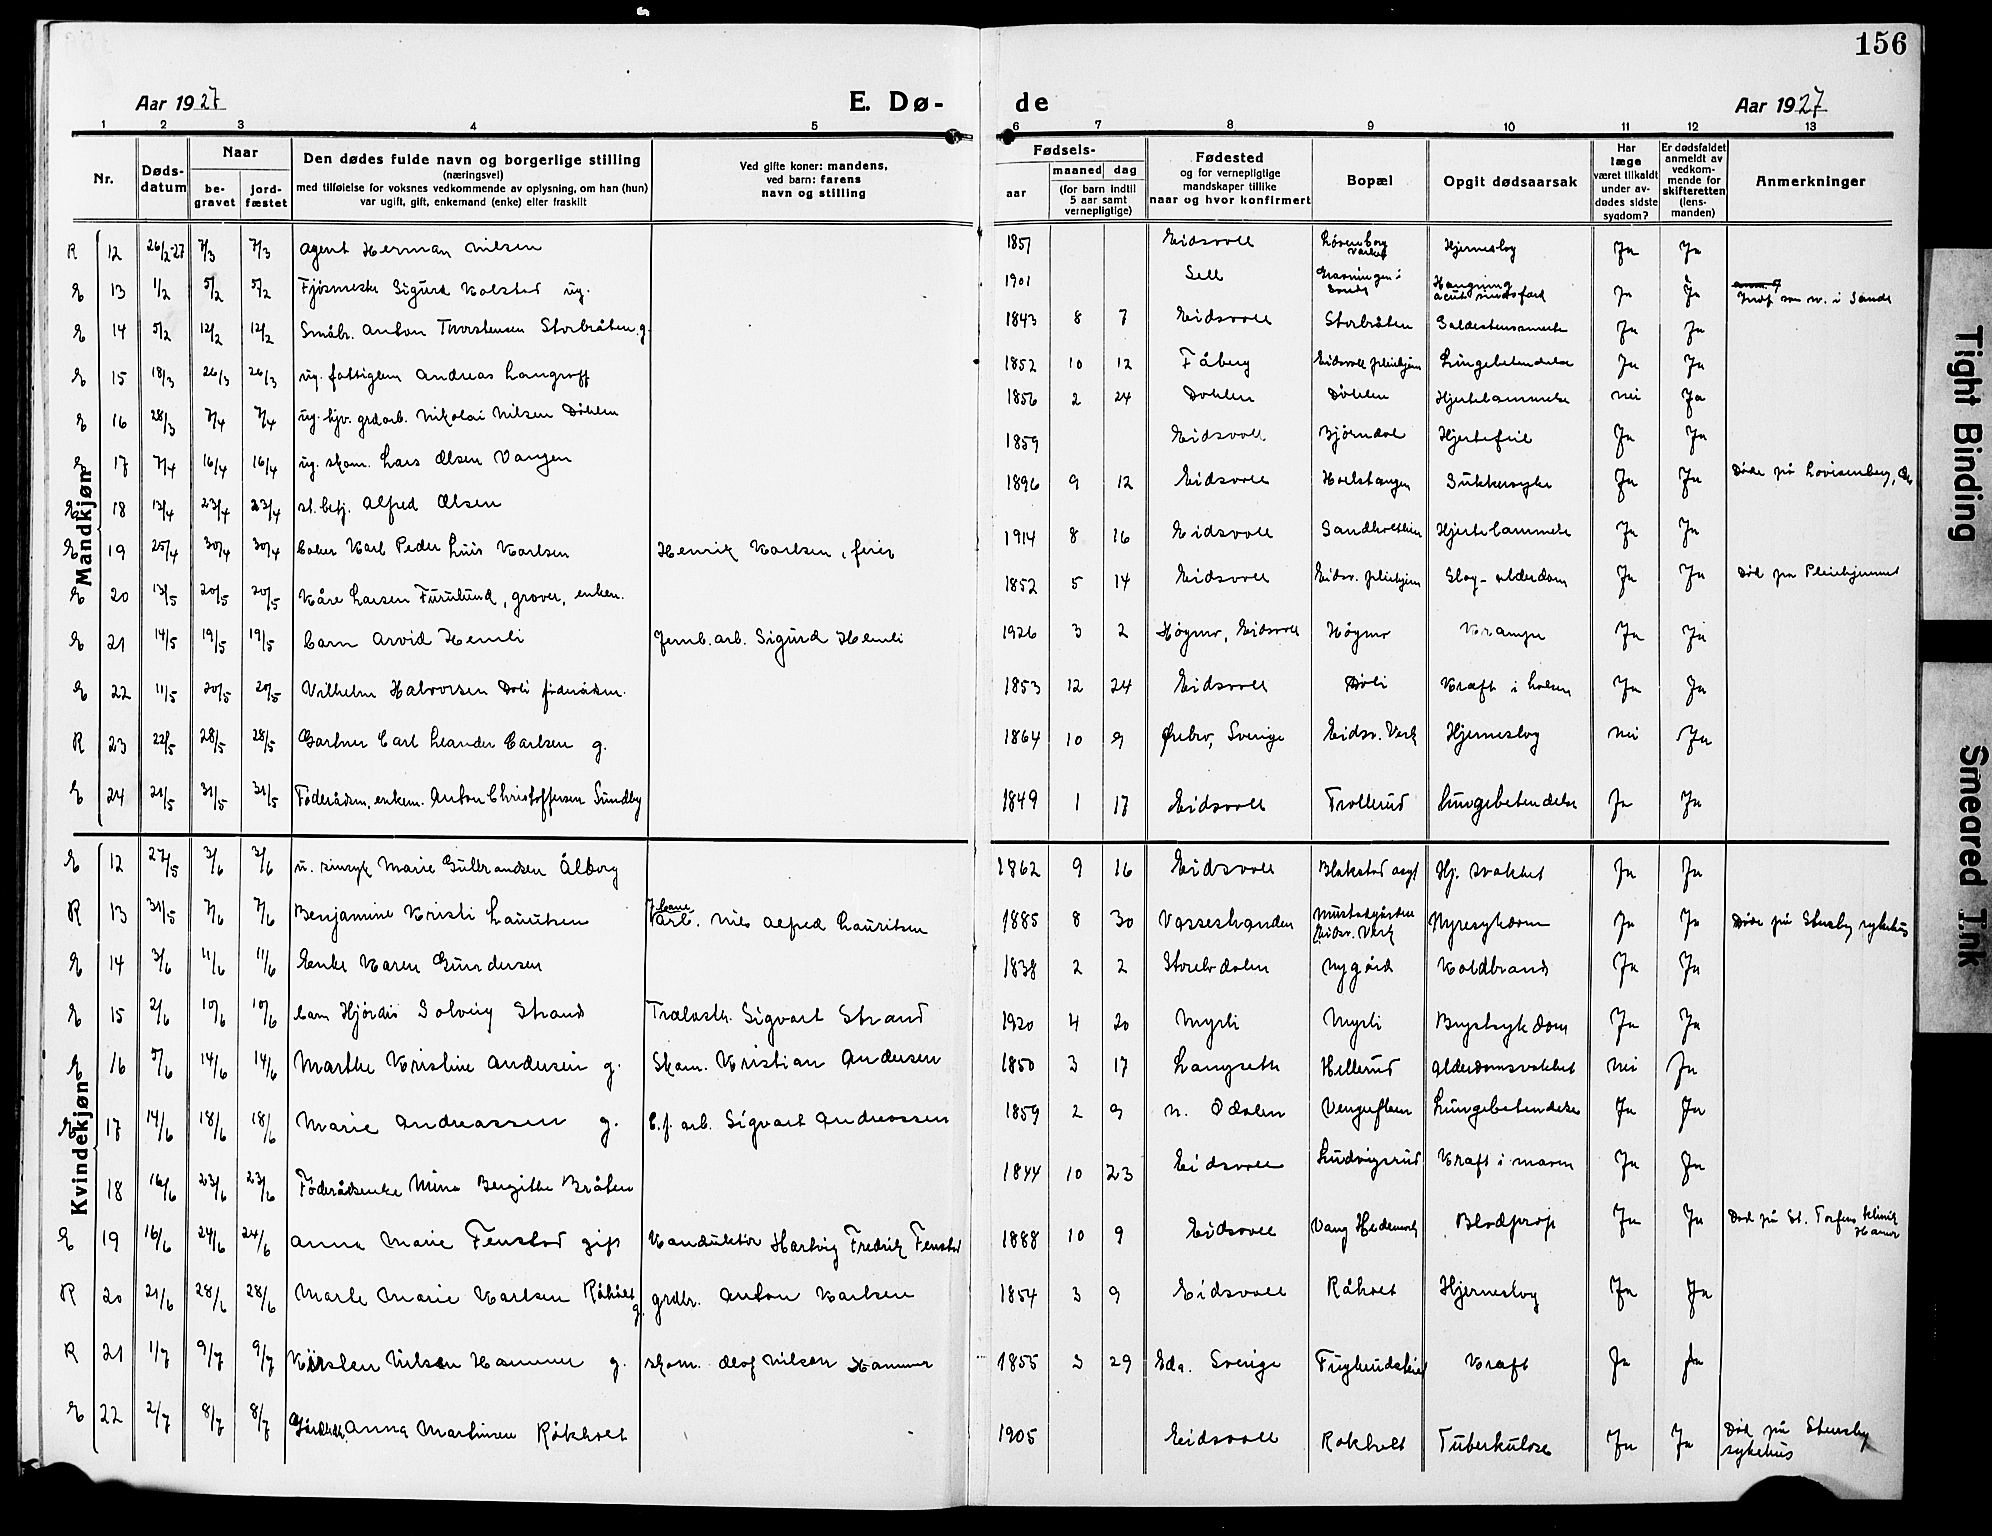 156
Aar 1927 E. Dø- de Aar 1927
1 2 3 4 5 6 7 8 9 10 11 12 13
Nr.
Døds-
datum
Naar
be-
gravet
jord-
fæstet
Den dødes fulde navn og borgerlige stilling
(næringsvei)
med tilføielse for voksnes vedkommende av oplysning, om han (hun)
var ugift, gift, enkemand (enke) eller fraskilt
Ved gifte koner: mandens,
ved barn: farens
navn og stilling
Fødsels-
aar
maaned dag
(for barn indtil
5 aar samt
vernepligtige)
Fødested
og for vernepligtige
mandskaper tillike
naar og hvor konfirmert
Bopæl
Opgit dødsaarsak
Har
læge
været tilkaldt
under av-
dødes sidste
sygdom?
Er dødsfaldet
anmeldt av
vedkom-
mende for
skifteretten
(lens-
manden)
Anmerkninger
Mandkjøn
R 12 26/2-27 7/3 7/3 Agent Herman Nilsen 1851 Eidsvoll Hjerneslag Ja Ja
E 13 1/2 5/2 5/2 Sigurd Kolstad ug. 1901 Sell Hængning Ja Ja
E 14 5/2 12/2 12/2 Småbr. Anton Thorstensen Storbråten g. 1843 8 7 Eidsvoll Storbråten Ja Ja
E 15 18/3 26/3 26/3 ug. fattiglem Andreas Langroff 1852 10 12 Fåberg Eidsvoll pleiehjem Lungebetendelse Ja Ja
E 16 28/3 7/4 7/4 ug. hjv. grdarb. Nikolai Nilsen Døhlen 1856 2 24 Døhlen Døhlen Hjertelammelse nei Ja
E 17 7/4 16/4 16/4 ug. skom. Lars Olsen Vangen 1859 Eidsvoll Bjørndal Hjertefeil Ja Ja
E 18 13/4 23/4 23/4 st.betj. Alfred Olsen 1896 9 12 Eidsvoll Holstangen Sukkersyke Ja Ja Døde på Lovisenberg,
E 19 25/4 30/4 30/4 Barn Karl Peder Luis Karlsen Henrik Karlsen, feier 1914 8 16 Eidsvoll Hjertelammelse Ja Ja
E 20 13/5 20/5 20/5 Kåre Larsen Furulund, graver, enkem. 1852 5 14 Eidsvoll Eidsv. pleiehjem Slag - alderdom Ja Ja Død på Pleiehjemmet
E 21 14/5 19/5 19/5 Barn Arvid Hemli Jernb. arb. Sigurd Hemli 1926 3 2 Høgmo, Eidsvoll Høgmo Krampe Ja Ja
E 22 11/5 20/5 20/5 Vilhelm Halvorsen Døli føderådsm. 1853 12 24 Eidsvoll Døli Kræft i halsen Ja Ja
R 23 22/5 28/5 28/5 Gartner Carl Leander Carlsen g. 1864 10 9 Ørebro, Sverige Eidsv. Verk Hjerneslag nei Ja
E 24 21/5 31/5 31/5 Føderådsm, enkem. Anton Christoffersen Sundby 1849 1 17 Eidsvoll Trollerud Lungebetendelse Ja Ja
Kvindekjøn
E 12 27/5 3/6 3/6 u. sinsyk Marie Gulbrandsen Ålborg 1862 9 16 Eidsvoll Blakstad asyl Hj. svakhet Ja Ja
R 13 31/5 7/6 7/6 Benjamine Kristi Lauritsen Nils Alfred Lauritsen 1885 8 30 Vasestranden Mustadgården Eidsv. Verk Nyresykdom Ja Ja Døde på Stensby sykehus
E 14 3/6 11/6 11/6 Enke Karen Gundersen 1838 2 2 Nygård Koldbrand Ja Ja
E 15 2/6 10/6 10/6 Barn Hjørdis Solveig Strand Trælasth. Sigvart Strand 1920 4 20 Myrli Myrli Brystsykdom Ja Ja
E 16 5/6 14/6 14/6 Marthe Kristine Andersen g. Skom. Kristian Andersen 1850 3 17 Langseth Hellerud Alderdomsvakhet Nei Ja
E 17 14/6 18/6 18/6 Marie Andreassen g. C.f. arb. Sigvart Andreassen 1859 2 9 n. Odalen Lungebetendelse Ja Ja
18 16/6 23/6 23/6 Føderådsenke Mina Bergitte Bråten 1844 10 23 Eidsvoll Ludvigsrud Kræft i maven Ja Ja
E 19 16/6 24/6 24/6 Anna Marie Fenstad gift Konduktør Hartvig Fredrik Fenstad 1888 10 9 Eidsvoll Vang Hedemark Blodprop Ja Ja Død på St. Torfins klinik Hamar
R 20 21/6 28/6 28/6 Marte Marie Karlsen Råholt g. grdbr. Anton Karlsen 1854 3 9 Eidsvoll Råholt Hjerneslag Ja Ja
R 21 1/7 9/7 9/7 Kirsten Nilsen Hammer g. skom. Olof Nilsen Hammer 1855 3 29 Eda. Sverige Kræft Ja Ja
E 22 2/7 8/7 8/7 Anna Martinsen Råkholt 1905 Eidsvoll Råkholt Tuberkulose Ja Ja Død på Stensby sykehus
Tight Binding
Smeared Ink